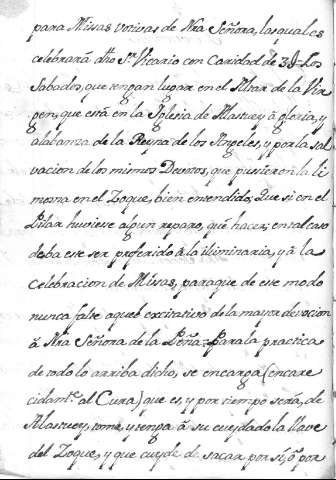 para Missas votivas de Nra Señora, las quales
celebrará dho Sr. Vicario con Caridad de 3 Los
Sabados, que tengan lugar en el Altar de la Vir
gen, que está en la Iglesia de Alastuey à gloria, y
alabanza de la Reyna de los Angeles, y por la sal
vacion de los mismos Devotos, que pusieren la li
mosna en el Zoque, bien entendido; Que si en el
Pilar huviese algun reparo, que hacer; en tal caso
deba este ser preferido à la iliminaria, y à la
Celebracion de Missas, para que de ese modo
nunca falte aquel excitativo de la mayor devocion
à Nra Señora de la Peña: Para la practica
de todo lo arriba dicho, se encarga (encare
cidamte. al Cura) que es, y por tiempo será, de
Alastuey, tome, y tenga à su cuydado la llave
del Zoque, y que cuyde de sacar por sí, ò por